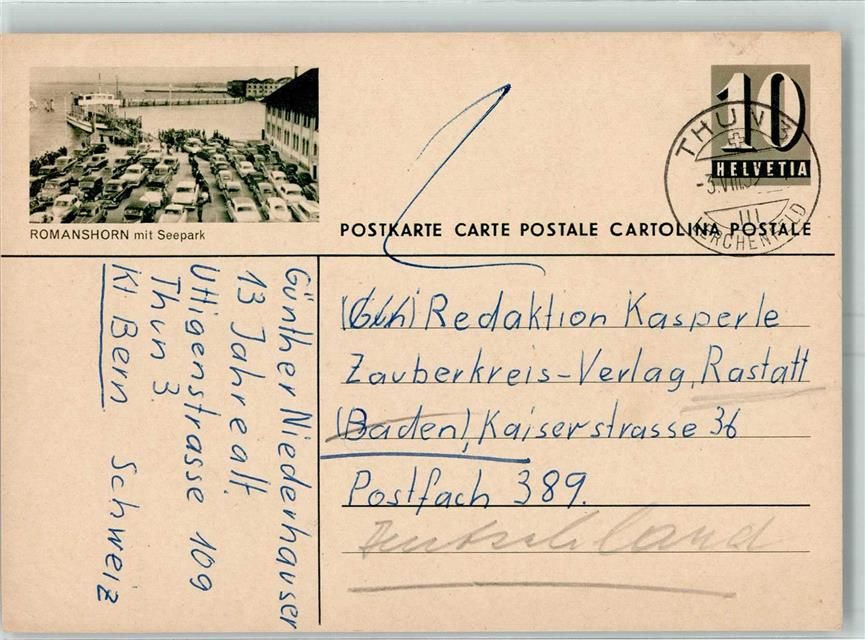 ROMANSHORN mit Seepark
POSTKARTE CARTE POSTALE CARTOLINA POSTALE
10
HELVETIA
THUN 3
LERCHENFELD
Redaktion Kasperle
Zauberkreis-Verlag, Rastatt
(Baden), Kaiserstrasse 36
Postfach 389.
Deutschland
Günther Niederhauser
13 Jahre alt.
Uttigenstrasse 109
Thun 3.
Kt Bern Schweiz